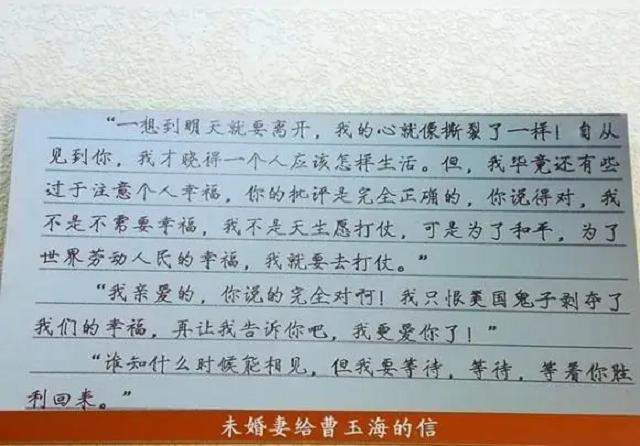 “一想到明天就要离开，我的心就像撕裂了一样！自从
见到你，我才晓得一个人应该怎样生活。但，我毕竟还有些
过于注意个人幸福，你的批评是完全正确的，你说得对，我
不是不需要幸福，我不是天生愿打仗，可是为了和平，为了
世界劳动人民的幸福，我就要去打仗。”
“我亲爱的，你说的完全对啊！我只恨美国鬼子剥夺了
我们的幸福，再让我告诉你吧，我更爱你了！”
“谁知什么时候能相见，但我要等待，等待，等着你胜
利回来。”
未婚妻给曹玉海的信